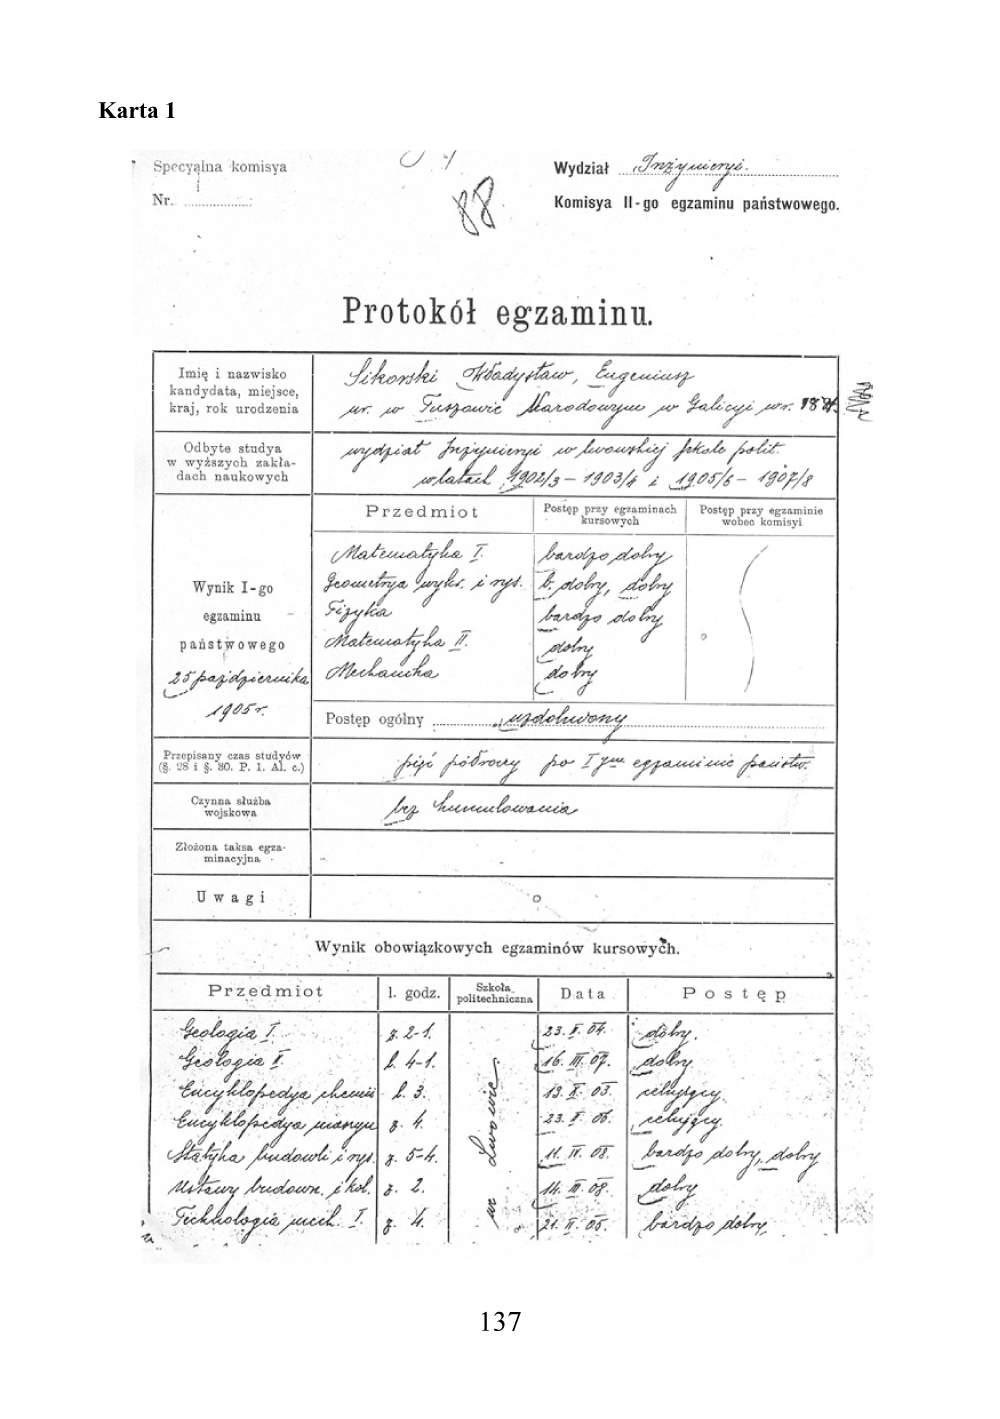 Karta 1
Specyalna komisya
Nr.
88
Wydział Inżynieryi.
Komisya II-go egzaminu państwowego.
Protokół egzaminu.
Imię i nazwisko
kandydata, miejsce,
kraj, rok urodzenia
Sikorski Władysław, Eugeniusz
ur. w Tuszowie Narodowym w Galicyi w r.
Odbyte studya
w wyższych zakła-
dach naukowych
wydział Inżynieryi w lwowskiej szkole polit.
w latach 1902/3 – 1903/4 i 1905/6 – 1907/8
Wynik I-go
egzaminu
państwowego
25 października
1905 r.
Przedmiot Postęp przy egzaminach kursowych Postęp przy egzaminie wobec komisyi
Matematyka I. bardzo dobry
Geometrya wykr. i rys. b. dobry, dobry
Fizyka bardzo dobry
Matematyka II. dobry
Mechanika dobry
Postęp ogólny uzdolniony
Przepisany czas studyów
(§. 28 i §. 30. P. 1. Al. c.)
pięć półroczy po I-ym egzaminie państw.
Czynna służba
wojskowa
bez
Złożona taksa egza-
minacyjna
Uwagi
Wynik obowiązkowych egzaminów kursowych.
Przedmiot l. godz. Szkoła politechniczna Data Postęp
we Lwowie
Geologia I. z. 2-1. 23. II. 04. dobry.
Geologia II. l. 4-1. 16. III. 07. dobry
Encyklopedya chemii l. 3. 13. X. 03. celujący.
Encyklopedya maszyn z. 4. 23. X. 06. celujący.
Statyka budowli i rys. z. 5-4. 11. IV. 08. bardzo dobry, dobry
Ustawy budown. i kol. z. 2. 14. III. 08. dobry
Technologia mech. I. z. 4. 21. II. 05. bardzo dobry
137